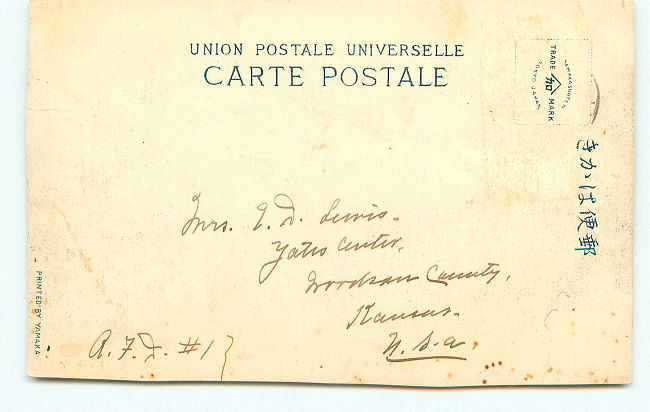 UNION POSTALE UNIVERSELLE
CARTE POSTALE
TRADE MARK
TOKYO JAPAN
きかは便郵
Mrs. E. D. Lewis.
Yates Center,
Woodson County,
Kansas.
U.S.A.
R.F.D. #1
PRINTED BY YAMAKA